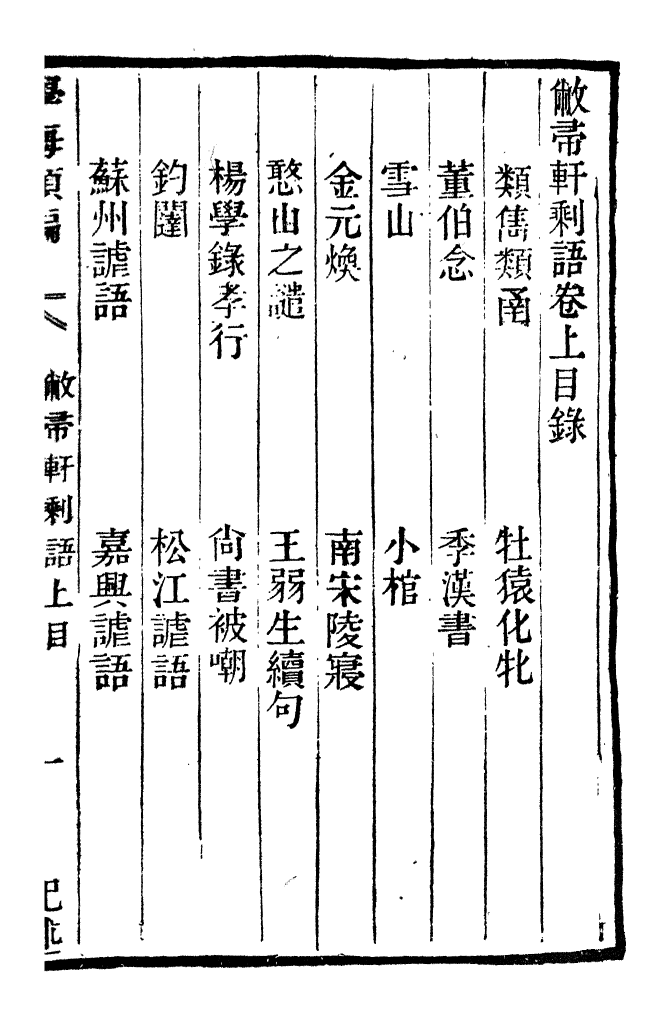 敝帚軒剩語卷上目錄
類雋類函　牡猿化牝
董伯念　季漢書
雪山　小棺
金元煥　南宋陵寢
憨山之譴　王弱生續句
楊學錄孝行　尙書被嘲
鈞闥　松江謔語
蘇州謔語　嘉興謔語
學海類編　敝帚軒剩語上目　一